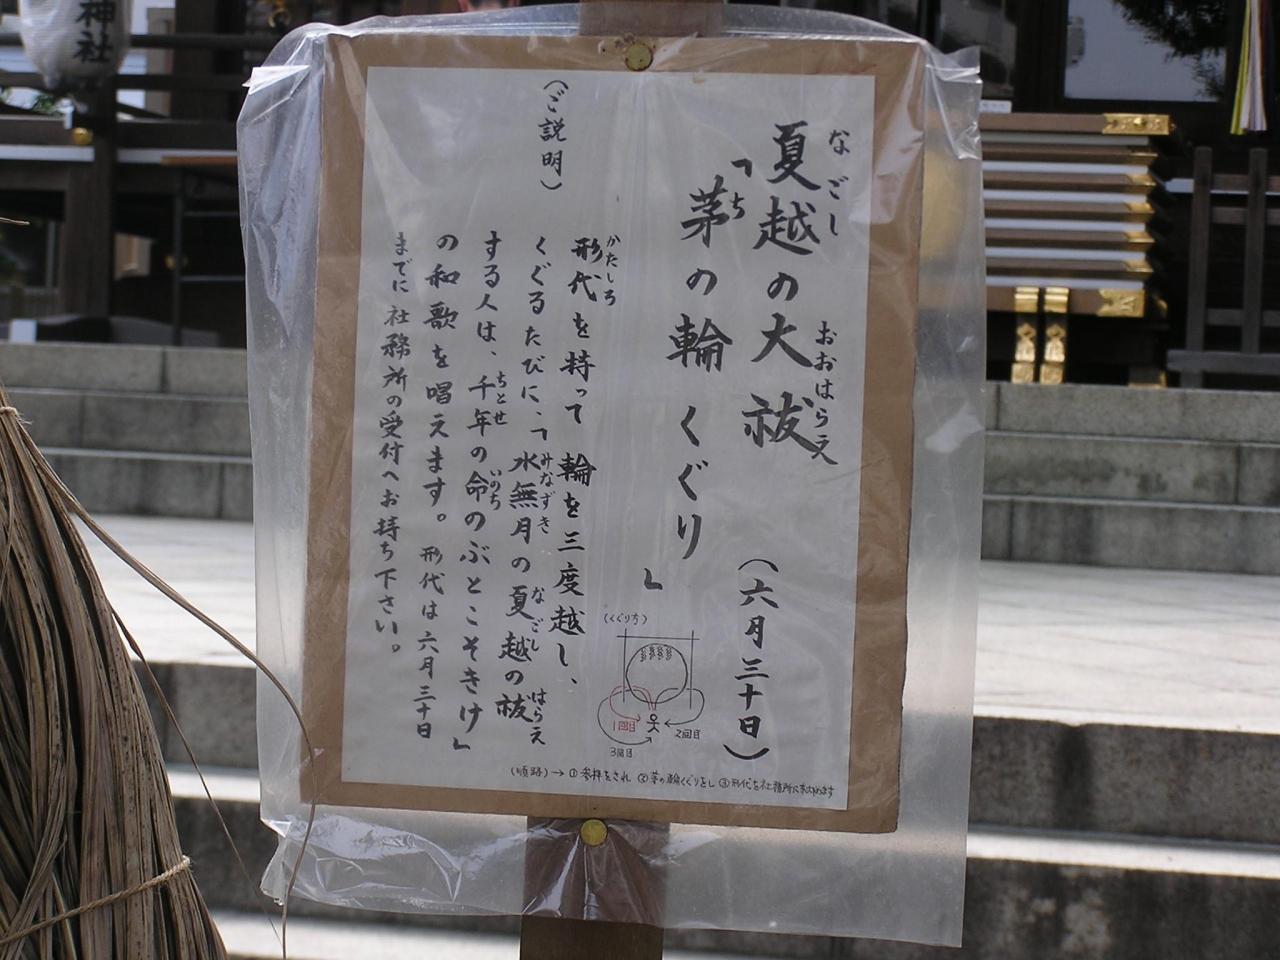 神社
夏越の大祓
なごし
おおはらえ
(六月三十日)
「茅の輪くぐり」
ち
(ご説明)
形代を持って輪を三度越し、
かたしろ
くぐるたびに、「水無月の夏越の祓
みなずき
なごし
はらえ
する人は、千年の命のぶとこそきけ」
ちとせ
いのち
の和歌を唱えます。形代は六月三十日
までに社務所の受付へお持ち下さい。
(くぐり方)
1回目
2回目
3回目
(順路)→①参拝をされ ②茅の輪くぐりをし ③形代を社務所に納めます